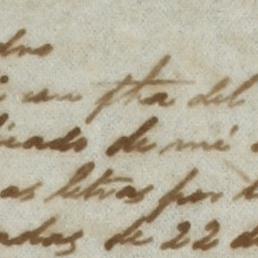 dro
con fha del
icado de mi
as letras por
adas de 22 de